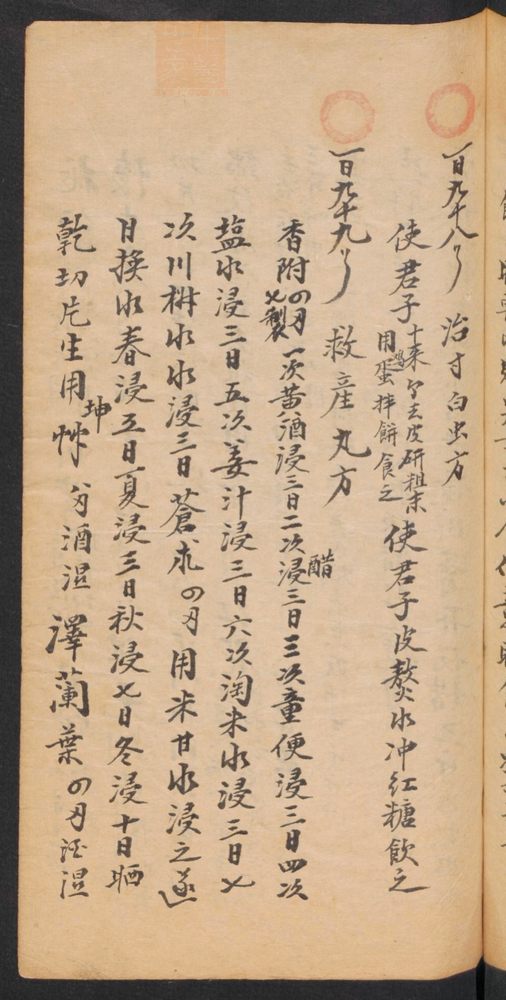 一百九十八 治寸白虫方
使君子 十來个去皮研粗末 用鸡蛋拌餅食之 使君子皮熬水冲紅糖飲之
一百九十九 救産丸方
香附四两七製 一次黄酒浸三日二次醋浸三日三次童便浸三日四次
盐水浸三日五次姜汁浸三日六次淘米水浸三日七
次川椒水浸三日 蒼朮四两用米甘水浸之逐
日換水春浸五日夏浸三日秋浸七日冬浸十日晒
乾切片生用 坤 酒湿 澤蘭葉四两 湿